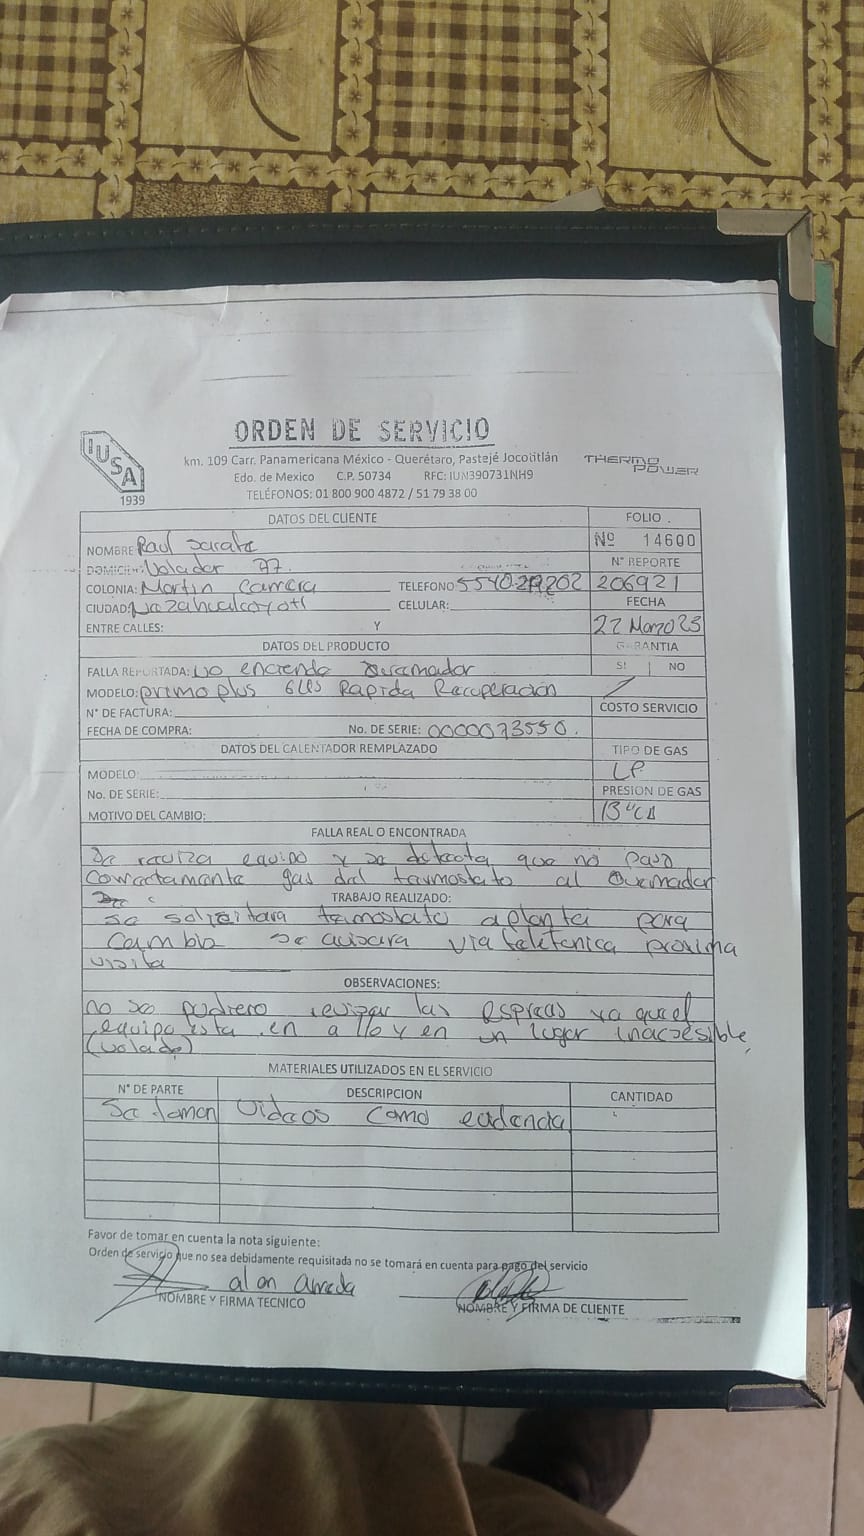 IUSA
1939
ORDEN DE SERVICIO
km. 109 Carr. Panamericana México - Querétaro, Pastejé Jocotitlán
Edo. de Mexico C.P. 50734 RFC: IUN390731NH9
TELÉFONOS: 01 800 900 4872 / 51 79 38 00
THERMO POWER
DATOS DEL CLIENTE
FOLIO
Nº 14600
NOMBRE Raul Sarate
Nº REPORTE
DOMICILIO: Volador 77.
COLONIA: Martin Carrera TELEFONO 206921
CIUDAD: Nezahualcoyotl CELULAR: FECHA
ENTRE CALLES: Y 22 Marzo 23
DATOS DEL PRODUCTO GARANTIA
FALLA REPORTADA: no enciende Quemador SI NO
MODELO: primo plus 6 Lts Rapida Recuperacion
Nº DE FACTURA: COSTO SERVICIO
FECHA DE COMPRA: No. DE SERIE: 0000073550.
DATOS DEL CALENTADOR REMPLAZADO TIPO DE GAS
MODELO: LP
No. DE SERIE: PRESION DE GAS
MOTIVO DEL CAMBIO: 13"CA
FALLA REAL O ENCONTRADA
Se reviza equipo y se detecta que no pasa
correctamente gas del termostato al Quemador
TRABAJO REALIZADO:
se solicitara termostato a planta para
Cambio se avisara via telefonica proxima
visita
OBSERVACIONES:
no se pudiero revizar las espreas ya que el
equipo esta en alto y en un lugar inaccesible
(volado)
MATERIALES UTILIZADOS EN EL SERVICIO
Nº DE PARTE DESCRIPCION CANTIDAD
Se toman videos como evidencia
Favor de tomar en cuenta la nota siguiente:
Orden de servicio que no sea debidamente requisitada no se tomará en cuenta para pago del servicio
alan
NOMBRE Y FIRMA TECNICO
NOMBRE Y FIRMA DE CLIENTE